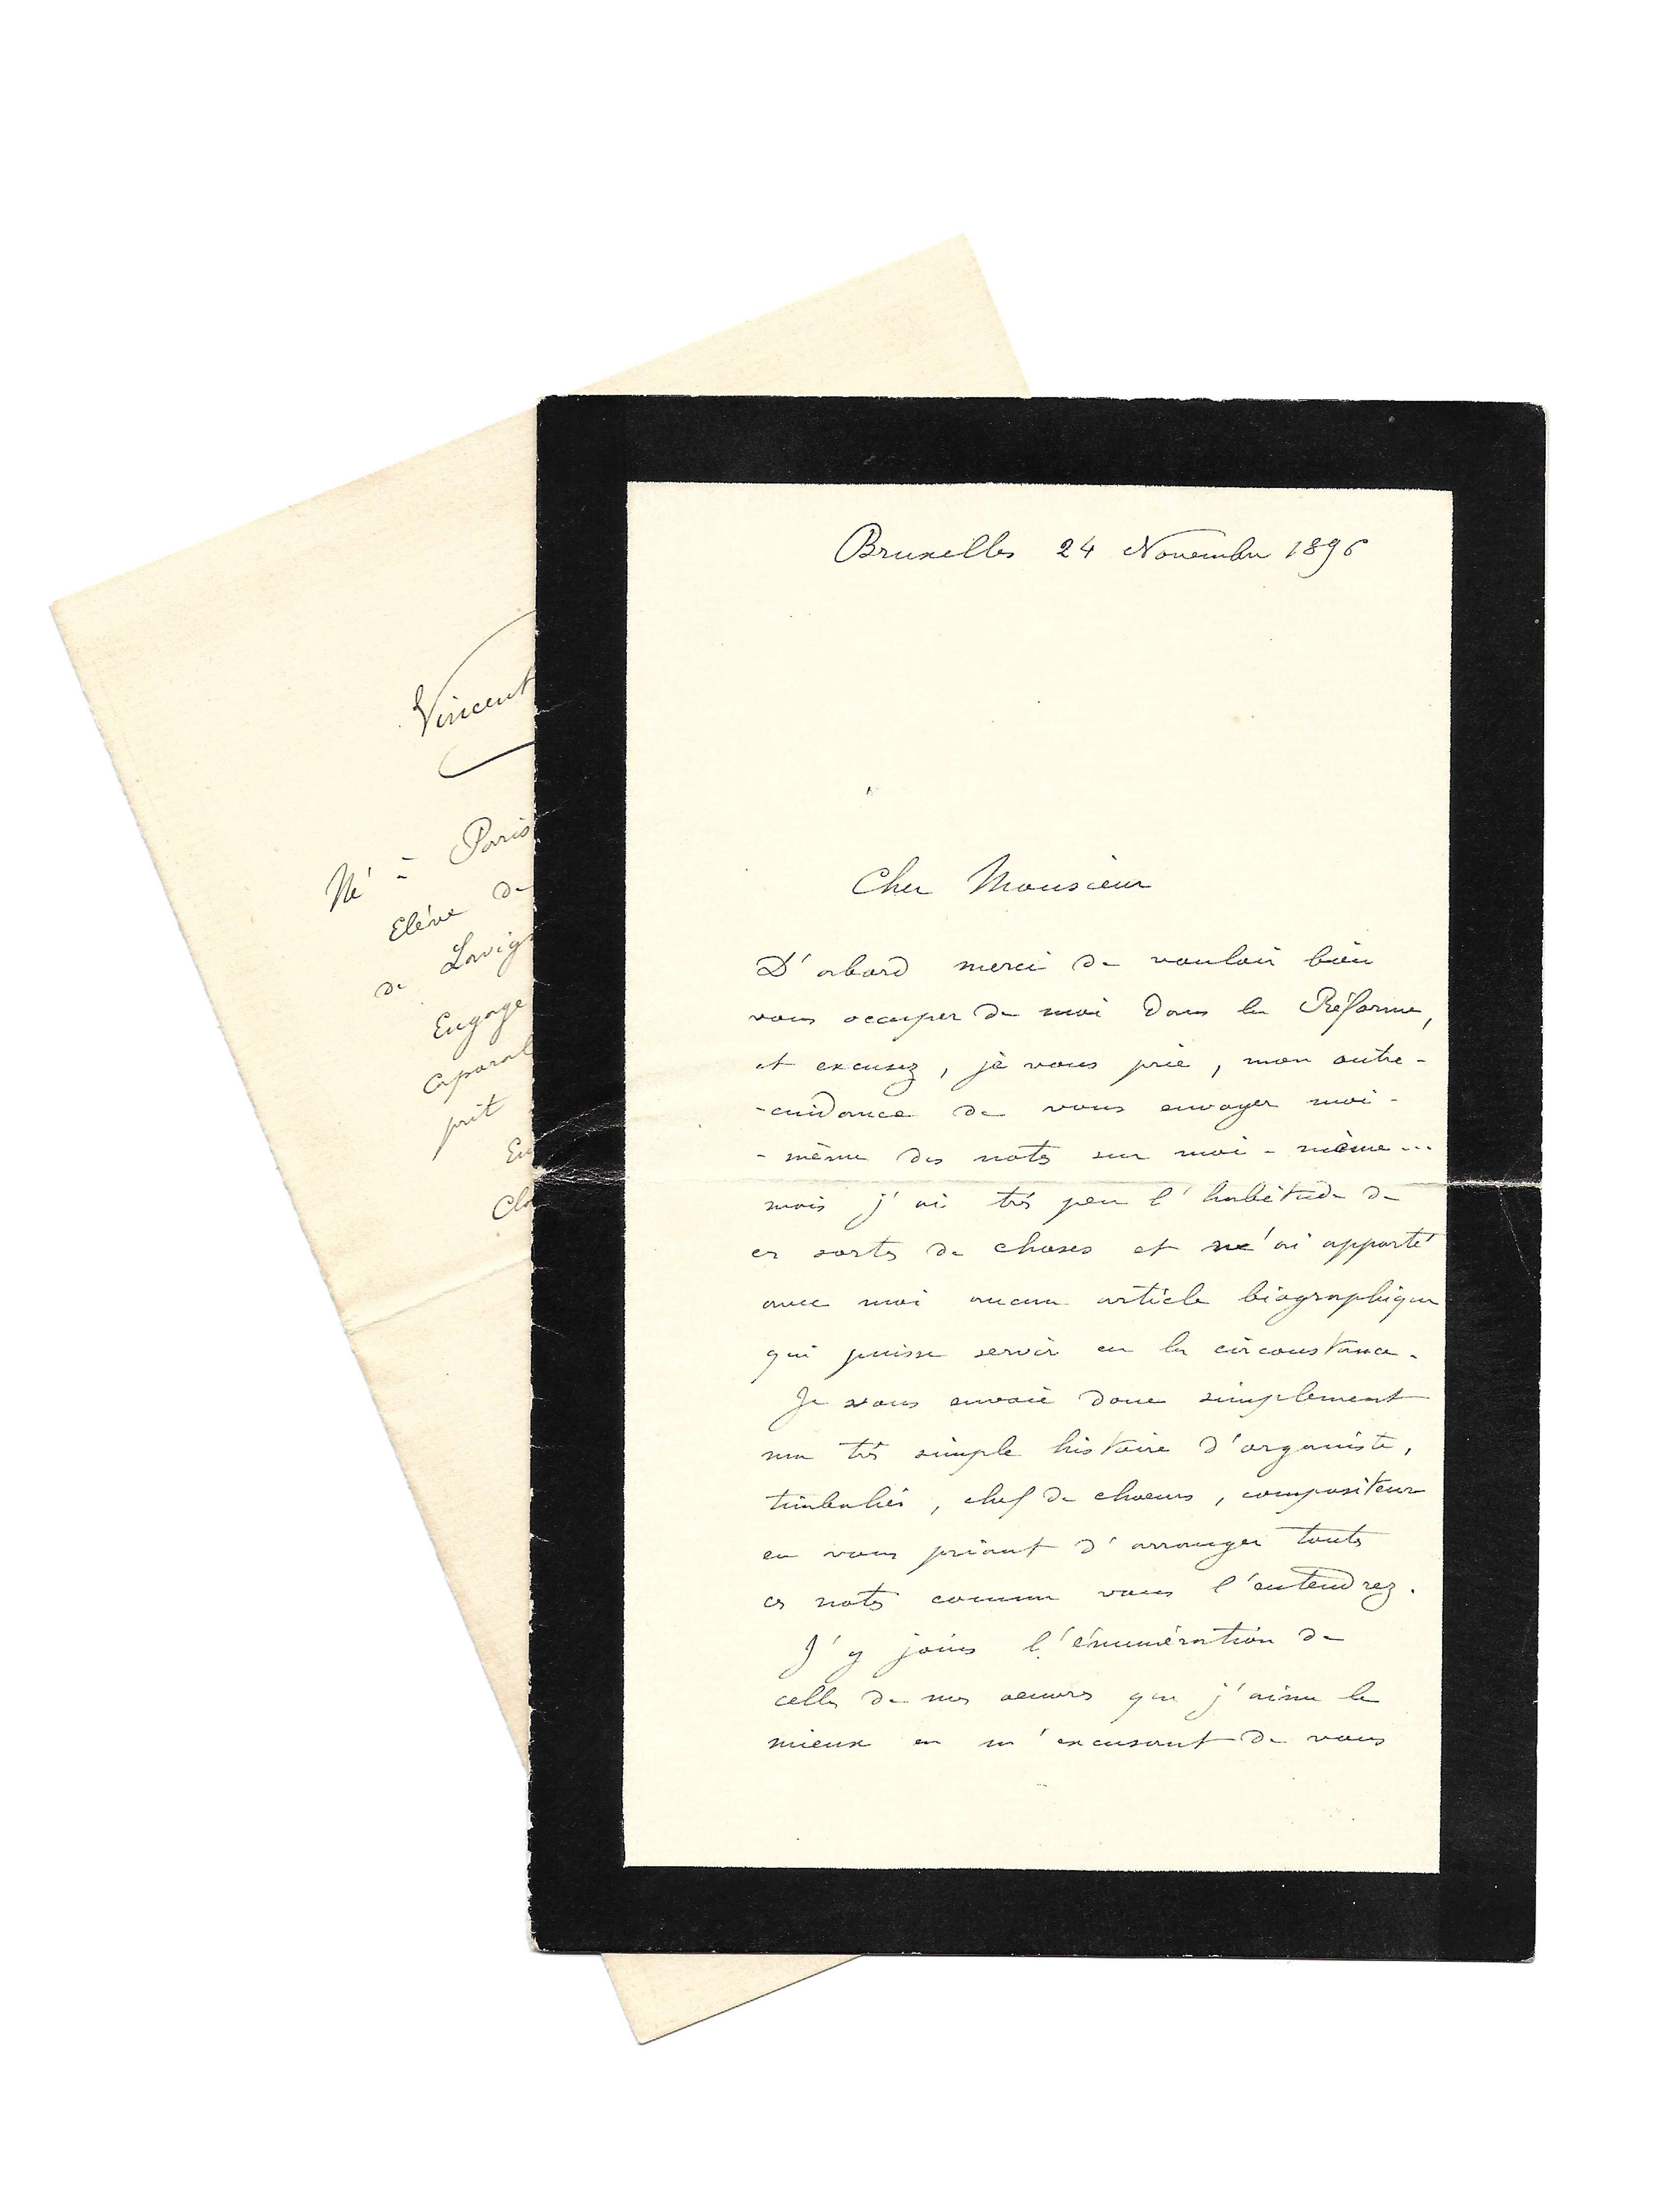 Bruxelles 24 Novembre 1896
Cher Monsieur
D'abord merci de vouloir bien
vous occuper de moi dans la Réforme,
et excusez, je vous prie, mon outre-
-cuidance de vous envoyer moi-
-même des notes sur moi-même...
mais j'ai très peu l'habitude de
ces sortes de choses et n'ai apporté
avec moi aucun article biographique
qui puisse servir en la circonstance.
Je vous envoie donc simplement
ma très simple histoire d'organiste,
timbalier, chef de choeurs, compositeur
en vous priant d'arranger toutes
ces notes comme vous l'entendrez.
J'y joins l'énumération de
celles de mes oeuvres que j'aime le
mieux en m'excusant de vous
Vincent
Né à Paris
Elève de
de Lavig
Engagé
caporal
prit
En
Cla